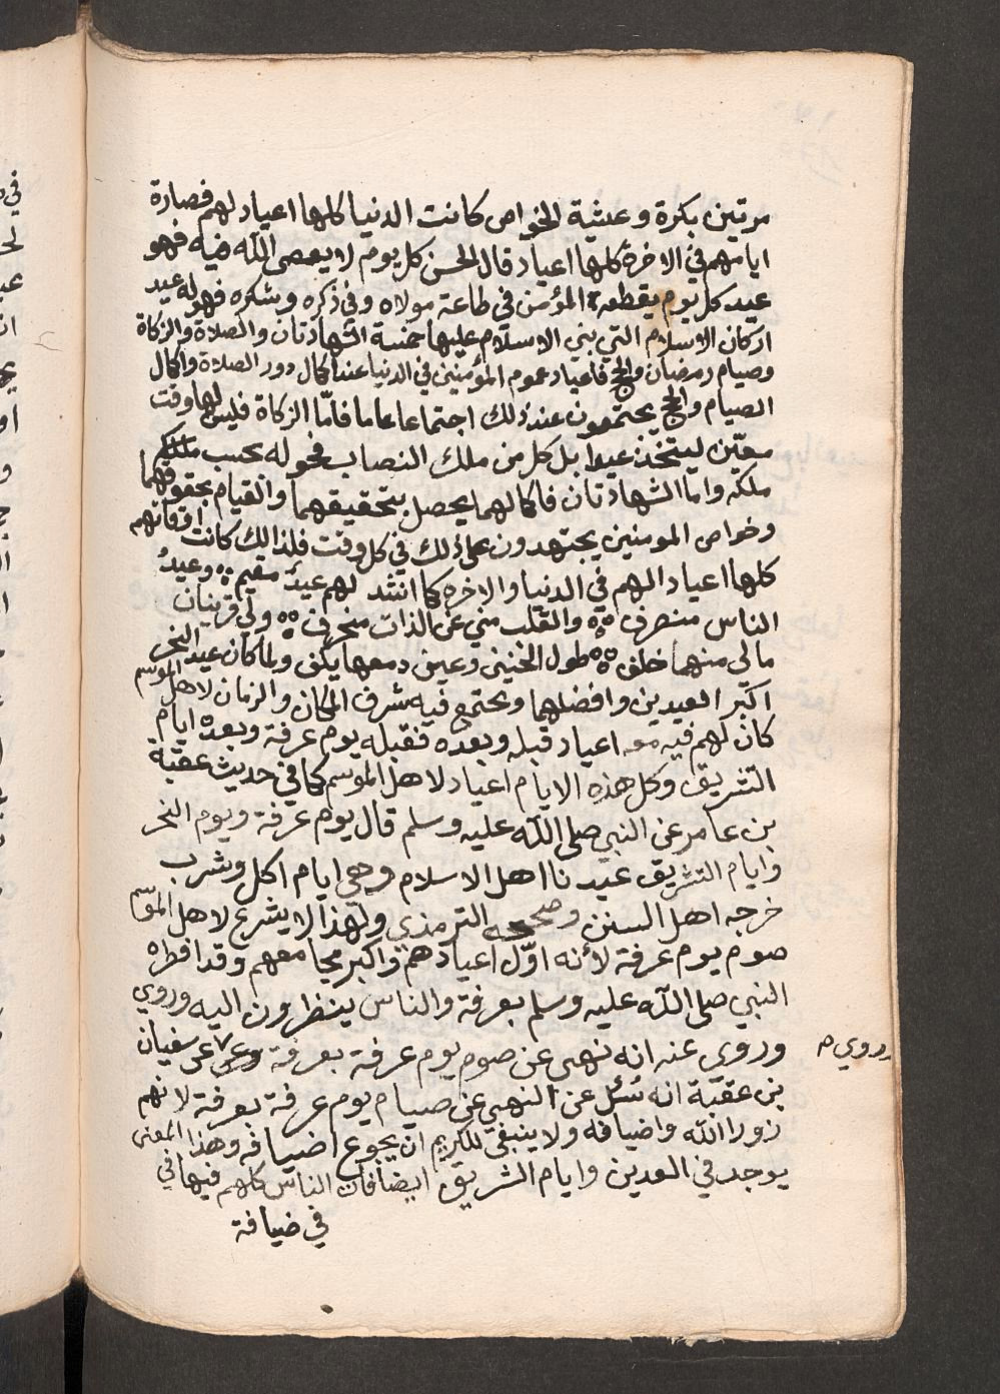 مرتين بكرة وعشية الخواص كانت الدنيا كلها اعياد لهم فصارة
ايامهم في الاخرة كلها اعياد قال الحسن كل يوم لا يعصى الله فيه فهو
عيد كل يوم يقطعه المؤمن في طاعة مولاه وفي ذكره وشكره فهو له عيد
اركان الاسلام التي بني الاسلام عليها خمسة الشهادتان والصلاة والزكاة
وصيام رمضان والحج فاعياد عموم المؤمنين في الدنيا عند اكمال دور الصلاة واكمال
الصيام والحج يجتمعون عند ذلك اجتماعا عاما فامّا الزكاة فليس لها وقت
معيّن ليتخذ عيدا بل كل من ملك النصاب فحوله بحسب
ملكه واما الشهادتان فاكمالهما يحصل بتحقيقهما والقيام بحقوقهما
وخواص المومنين يجتهدون على ذلك في كل وقت فلذالك كانت اوقاتهم
كلها اعياد الهم في الدنيا والاخرة كما انشد لهم عيدٌ مقيم ؞ وعيدُ
الناس منصرف ؞ والقلب مني عن الذات منحرف ؞ ولي قرينان
مالي منهما خلف ؞ طول الحنين وعين دمعها يكف ولما كان عيد النحر
اكبر العيدين وافضلهما ويجتمع فيه شرف المكان والزمان لاهل الموسم
كان لهم فيه معه اعياد قبله وبعده فقبله يوم عرفة وبعده ايام
التشريق وكل هذه الايام اعياد لاهل الموسم كما في حديث عقبة
بن عامر عن النبي صلى الله عليه وسلم قال يوم عرفة ويوم النحر
وايام التشريق عيدنا اهل الاسلام وهي ايام اكل وشرب
خرجه اهل السنن وصححه الترمذي ولهذا لا يشرع لاهل الموسم
صوم يوم عرفة لأنه اوّل اعيادهم واكبر مجامعهم وقد افطره
النبي صلى الله عليه وسلم بعرفة والناس ينظرون اليه وروي
وروي عنه انه نهى عن صوم يوم عرفة بعرفة عن سفيان
وروي م
بن عقبة انه سُئل عن النهي عن صيام يوم عرفة بعرفة لانهم
زورا الله واضيافه ولا ينبغي للكريم ان يجوع اضيافه وهذا المعنى
يوجد في العدين وايام الشريق ايضا فان الناس كلهم فيها في
في ضيافة